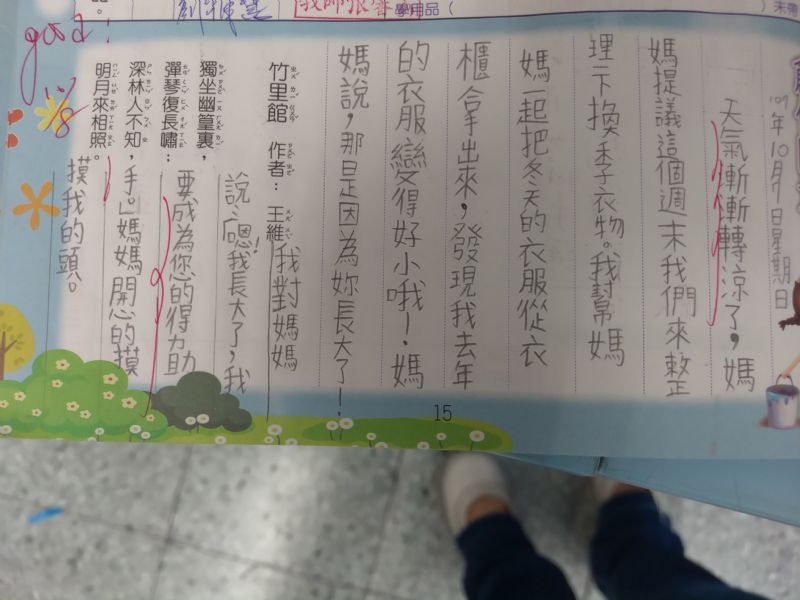 學用品（　　　）未帶
109年10月9日星期日
天氣漸漸轉涼了，媽
媽提議這個週末我們來整
理一下換季衣物。我幫媽
媽一起把冬天的衣服從衣
櫃拿出來，發現我去年
的衣服變得好小哦！媽
媽說，那是因為妳長大了！
我對媽媽
說、嗯!我長大了，我
要成為您的得力助
手。」媽媽開心的摸
摸我的頭。
竹里館 作者：王維
獨坐幽篁裏，
彈琴復長嘯；
深林人不知，
明月來相照。
good!
15